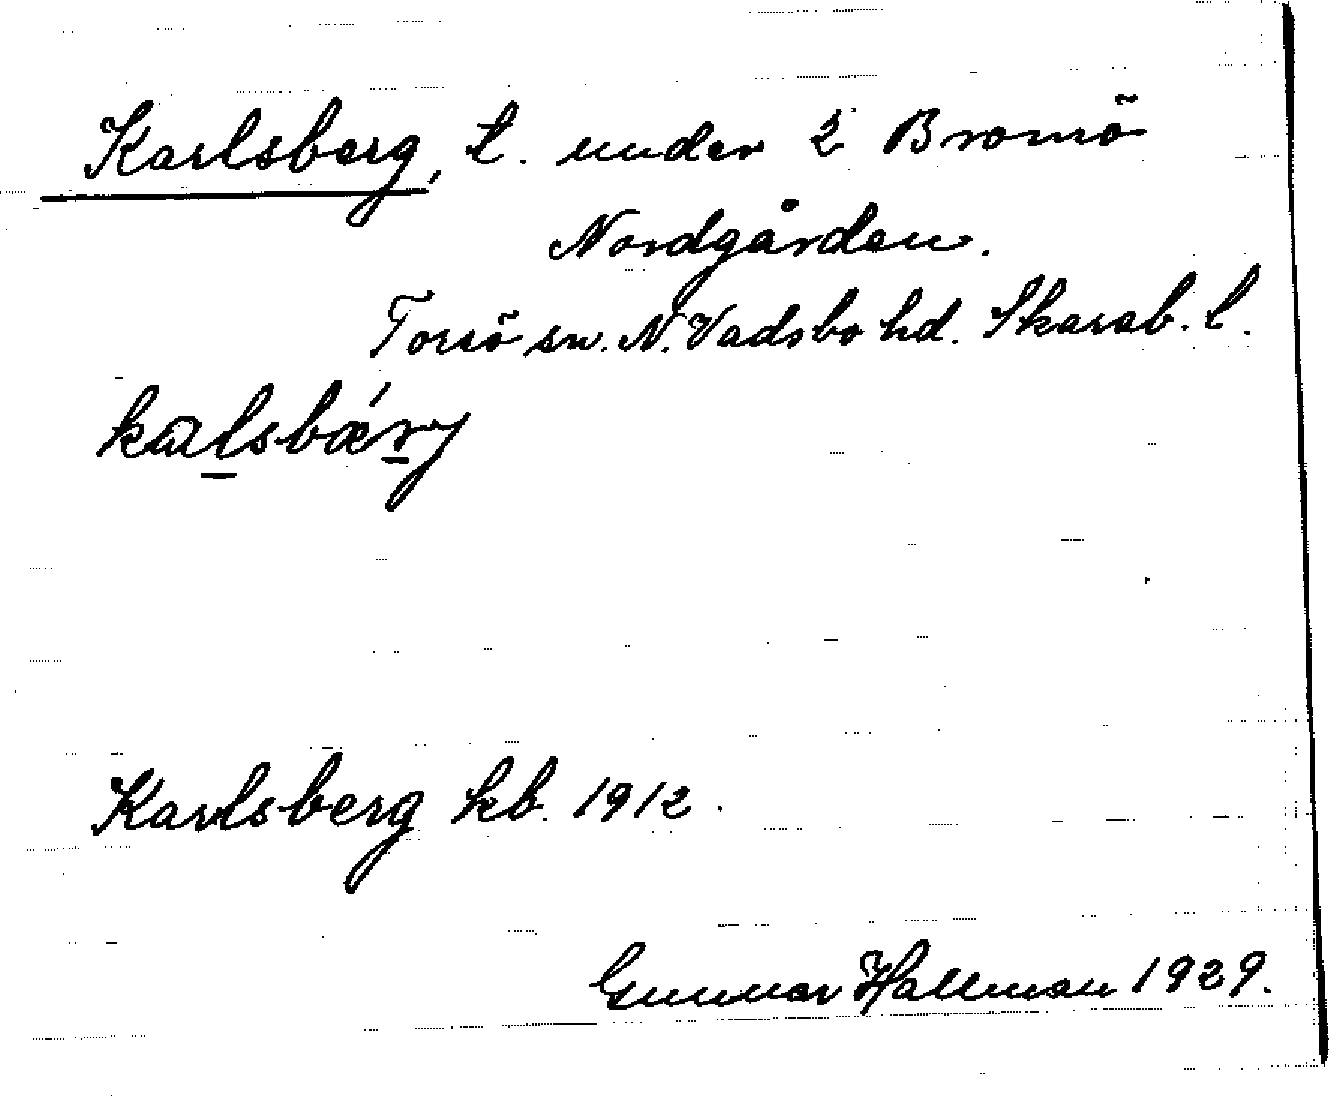 Karlsberg, t. under 2 Bromö
Nordgården.
Torsö sn. N. Vadsbo hd. Skarab. l.
kalsbærj
Karlsberg kb. 1912.
Gunnar Hallman 1929.